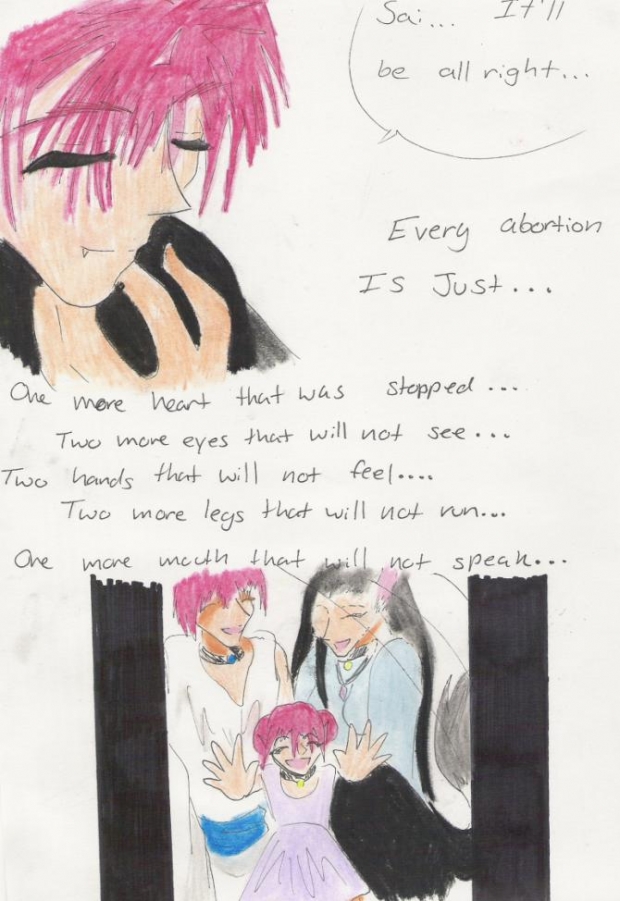 Sai... It'll
be all right...
Every abortion
Is Just...
One more heart that was stopped...
Two more eyes that will not see...
Two hands that will not feel....
Two more legs that will not run...
One more mouth that will not speak...